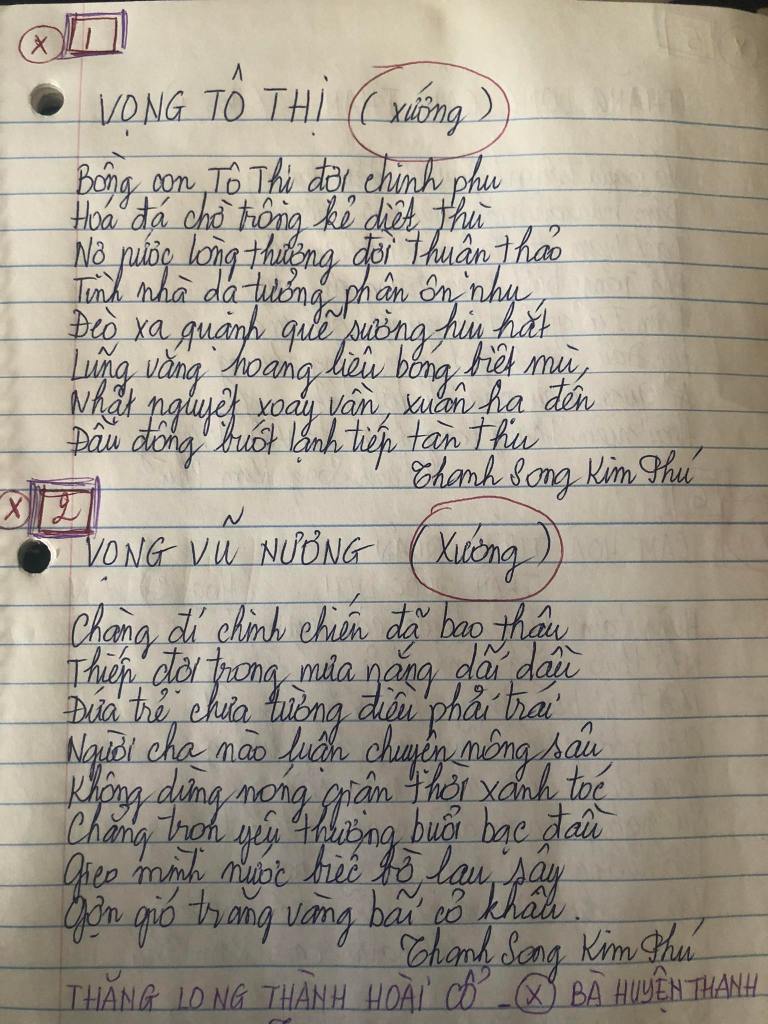 X 1
VỌNG TÔ THỊ (xướng)
Bồng con Tô Thị đợi chinh phu
Hoá đá chờ trông kẻ diệt thù
Nợ nước lòng thương đời thuận thảo
Tình nhà dạ tưởng phận ôn nhu
Đèo xa quạnh quẽ sương hiu hắt
Lũng vắng hoang liêu bóng biệt mù,
Nhật nguyệt xoay vần, xuân hạ đến
Dẫu đông buốt lạnh tiếp tàn thu
Thanh Song Kim Phú
X 2
VỌNG VŨ NƯƠNG (Xướng)
Chàng đi chinh chiến đã bao thâu
Thiếp đợi trong mưa nắng dãi dầu
Đứa trẻ chưa tường điều phải trái
Người cha nào luận chuyện nông sâu
Không dừng nóng giận thời xanh tóc
Chẳng trọn yêu thương buổi bạc đầu
Gieo mình nước biếc bờ lau sậy
Gợn gió trăng vàng bãi cỏ khâu.
Thanh Song Kim Phú
THĂNG LONG THÀNH HOÀI CỔ - X BÀ HUYỆN THANH